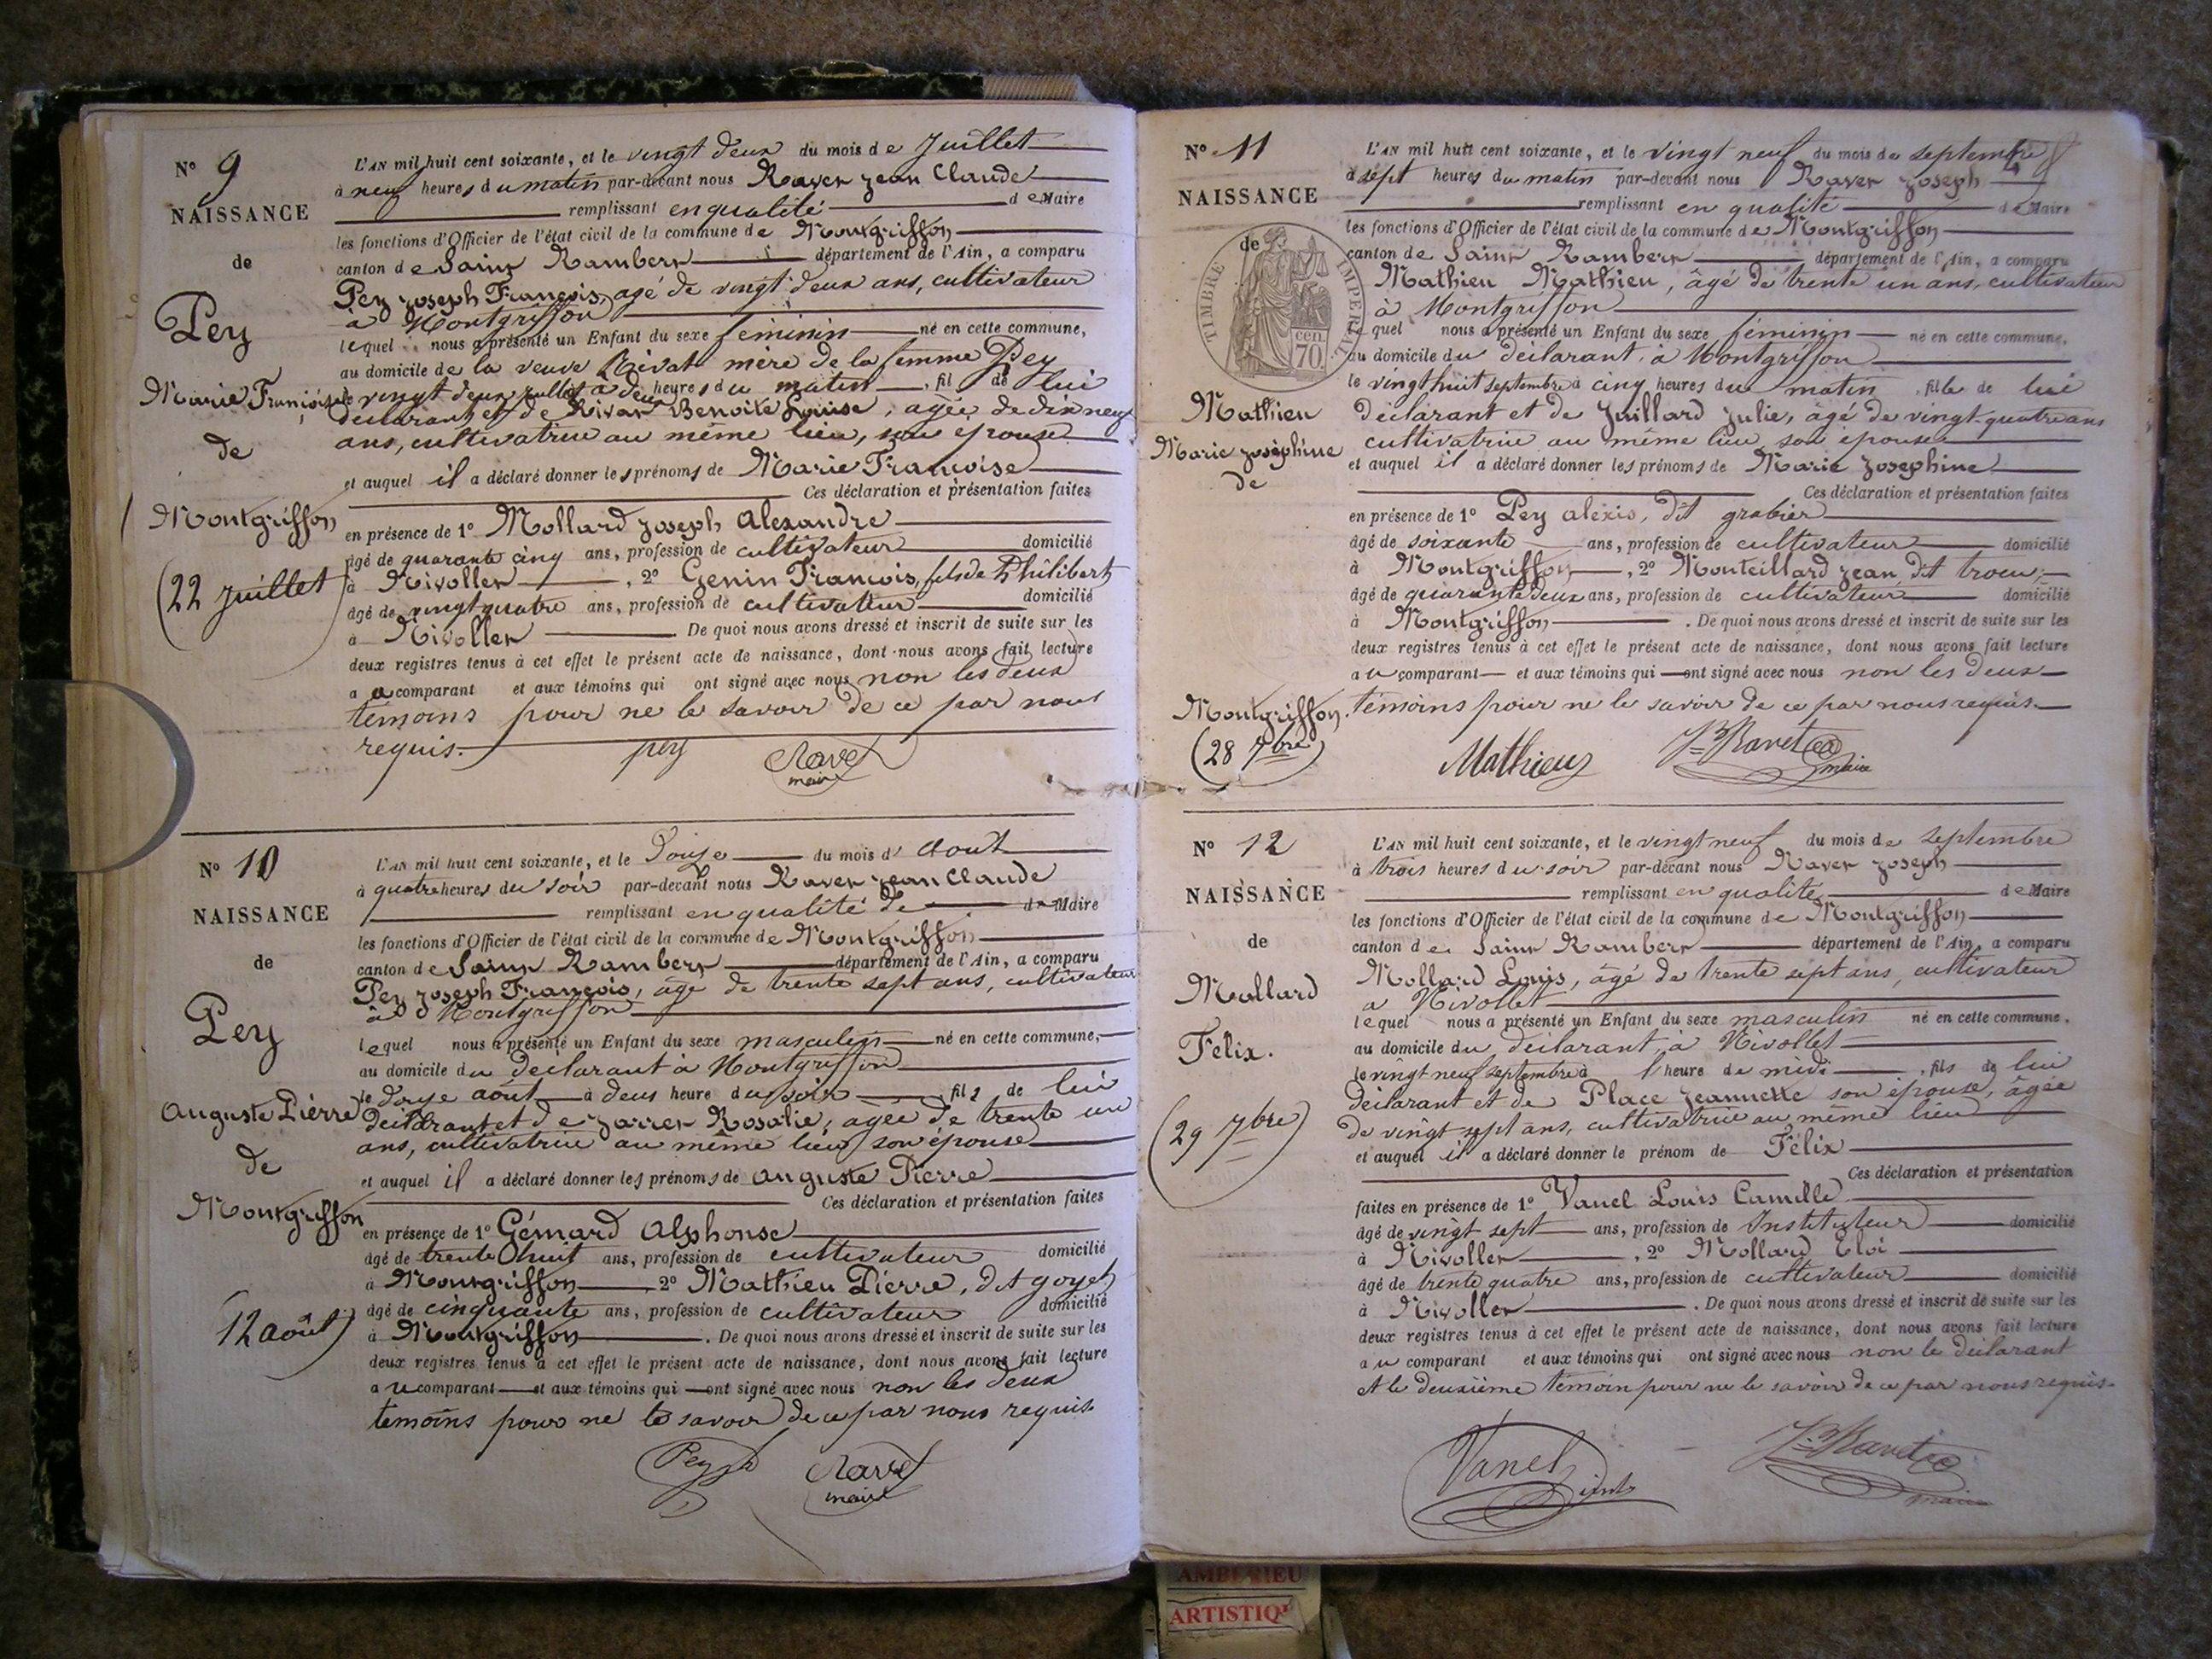 N° 9
NAISSANCE
de
Pey
Marie Françoise
de
Montgriffon
(22 Juillet)
L'AN mil huit cent soixante, et le vingt deux du mois de Juillet
à neuf heures du matin par-devant nous Ravet Jean Claude
remplissant en qualité de Maire
les fonctions d'Officier de l'état civil de la commune de Montgriffon
canton de Saint Rambert département de l'Ain, a comparu
Pey Joseph François, agé de vingt deux ans, cultivateur
à Montgriffon
lequel nous a présenté un Enfant du sexe féminin né en cette commune,
au domicile de la veuve Rivat mère de la femme Pey
le vingt deux juillet à deux heures du matin, fil de lui
déclarant et de Rivat Benoite Louise, agée de dix neuf
ans, cultivatrice au même lieu, son épouse
et auquel il a déclaré donner les prénoms de Marie Françoise
Ces déclaration et présentation faites
en présence de 1° Mollard Joseph Alexandre
âgé de quarante cinq ans, profession de cultivateur domicilié
à Nivollet, 2° Genin François, fils de Philibert
âgé de vingt quatre ans, profession de cultivateur domicilié
à Nivollet. De quoi nous avons dressé et inscrit de suite sur les
deux registres tenus à cet effet le présent acte de naissance, dont nous avons fait lecture
au comparant et aux témoins qui ont signé avec nous non les deux
témoins pour ne le savoir de ce par nous
requis.
pey Ravet
maire
N° 10
NAISSANCE
de
Pey
Auguste Pierre
de
Montgriffon
(12 août)
L'AN mil huit cent soixante, et le Douze du mois d' Aout
à quatre heures du soir par-devant nous Ravet Jean Claude
remplissant en qualité de de Maire
les fonctions d'Officier de l'état civil de la commune de Montgriffon
canton de Saint Rambert département de l'Ain, a comparu
Pey Joseph François, agé de trente sept ans, cultivateur
à Montgriffon
lequel nous a présenté un Enfant du sexe masculin né en cette commune,
au domicile du déclarant à Montgriffon
le douze août à deux heure du soir fils de lui
déclarant et de Jarret Rosalie, agée de trente un
ans, cultivatrice au même lieu, son épouse
et auquel il a déclaré donner les prénoms de Auguste Pierre
Ces déclaration et présentation faites
en présence de 1° Gémard Alphonse
âgé de trente huit ans, profession de cultivateur domicilié
à Montgriffon 2° Mathieu Pierre, dit goyet
âgé de cinquante ans, profession de cultivateur domicilié
à Montgriffon. De quoi nous avons dressé et inscrit de suite sur les
deux registres tenus à cet effet le présent acte de naissance, dont nous avons fait lecture
au comparant et aux témoins qui ont signé avec nous non les deux
témoins pour ne le savoir de ce par nous requis
Pey Ravet
maire
N° 11
NAISSANCE
de
TIMBRE IMPERIAL
70 cen.
Mathieu
Marie Joséphine
de
Montgriffon.
(28 7bre)
L'AN mil huit cent soixante, et le vingt neuf du mois de septembre
à sept heures du matin par-devant nous Ravet Joseph
remplissant en qualité de Maire
les fonctions d'Officier de l'état civil de la commune de Montgriffon
canton de Saint Rambert département de l'Ain, a comparu
Mathieu Mathieu, âgé de trente un ans, cultivateur
à Montgriffon
lequel nous a présenté un Enfant du sexe féminin né en cette commune,
au domicile du déclarant, à Montgriffon
le vingt huit septembre à cinq heures du matin, fille de lui
déclarant et de Juillard Julie, âgé de vingt quatre ans
cultivatrice au même lieu, son épouse
et auquel il a déclaré donner les prénoms de Marie Josephine
Ces déclaration et présentation faites
en présence de 1° Pey Alexis, dit grabier
âgé de soixante ans, profession de cultivateur domicilié
à Montgriffon, 2° Monteillard Jean dit
âgé de quarante deux ans, profession de cultivateur domicilié
à Montgriffon. De quoi nous avons dressé et inscrit de suite sur les
deux registres tenus à cet effet le présent acte de naissance, dont nous avons fait lecture
au comparant et aux témoins qui ont signé avec nous non les deux
témoins pour ne le savoir de ce par nous requis.
Mathieu Jh Ravet
maire
N° 12
NAISSANCE
de
Mollard
Félix.
(29 7bre)
L'AN mil huit cent soixante, et le vingt neuf du mois de septembre
à trois heures du soir par-devant nous Ravet Joseph
remplissant en qualité de Maire
les fonctions d'Officier de l'état civil de la commune de Montgriffon
canton de Saint Rambert département de l'Ain, a comparu
Mollard Louis, âgé de trente sept ans, cultivateur
à Nivollet
lequel nous a présenté un Enfant du sexe masculin né en cette commune,
au domicile du déclarant à Nivollet
le vingt neuf septembre à l'heure de midi, fils de lui
déclarant et de Place Jeannette son épouse, âgée
de vingt sept ans, cultivatrice au même lieu
et auquel il a déclaré donner le prénom de Félix
Ces déclaration et présentation
faites en présence de 1° Vanel Louis Camille
âgé de vingt sept ans, profession de Instituteur domicilié
à Nivollet, 2° Mollard Eloi
âgé de trente quatre ans, profession de cultivateur domicilié
à Nivollet. De quoi nous avons dressé et inscrit de suite sur les
deux registres tenus à cet effet le présent acte de naissance, dont nous avons fait lecture
au comparant et aux témoins qui ont signé avec nous non le déclarant
et le deuxième témoin pour ne le savoir de ce par nous requis.
Vanel Jh Ravet
maire
AMBERIEU
ARTISTIQ